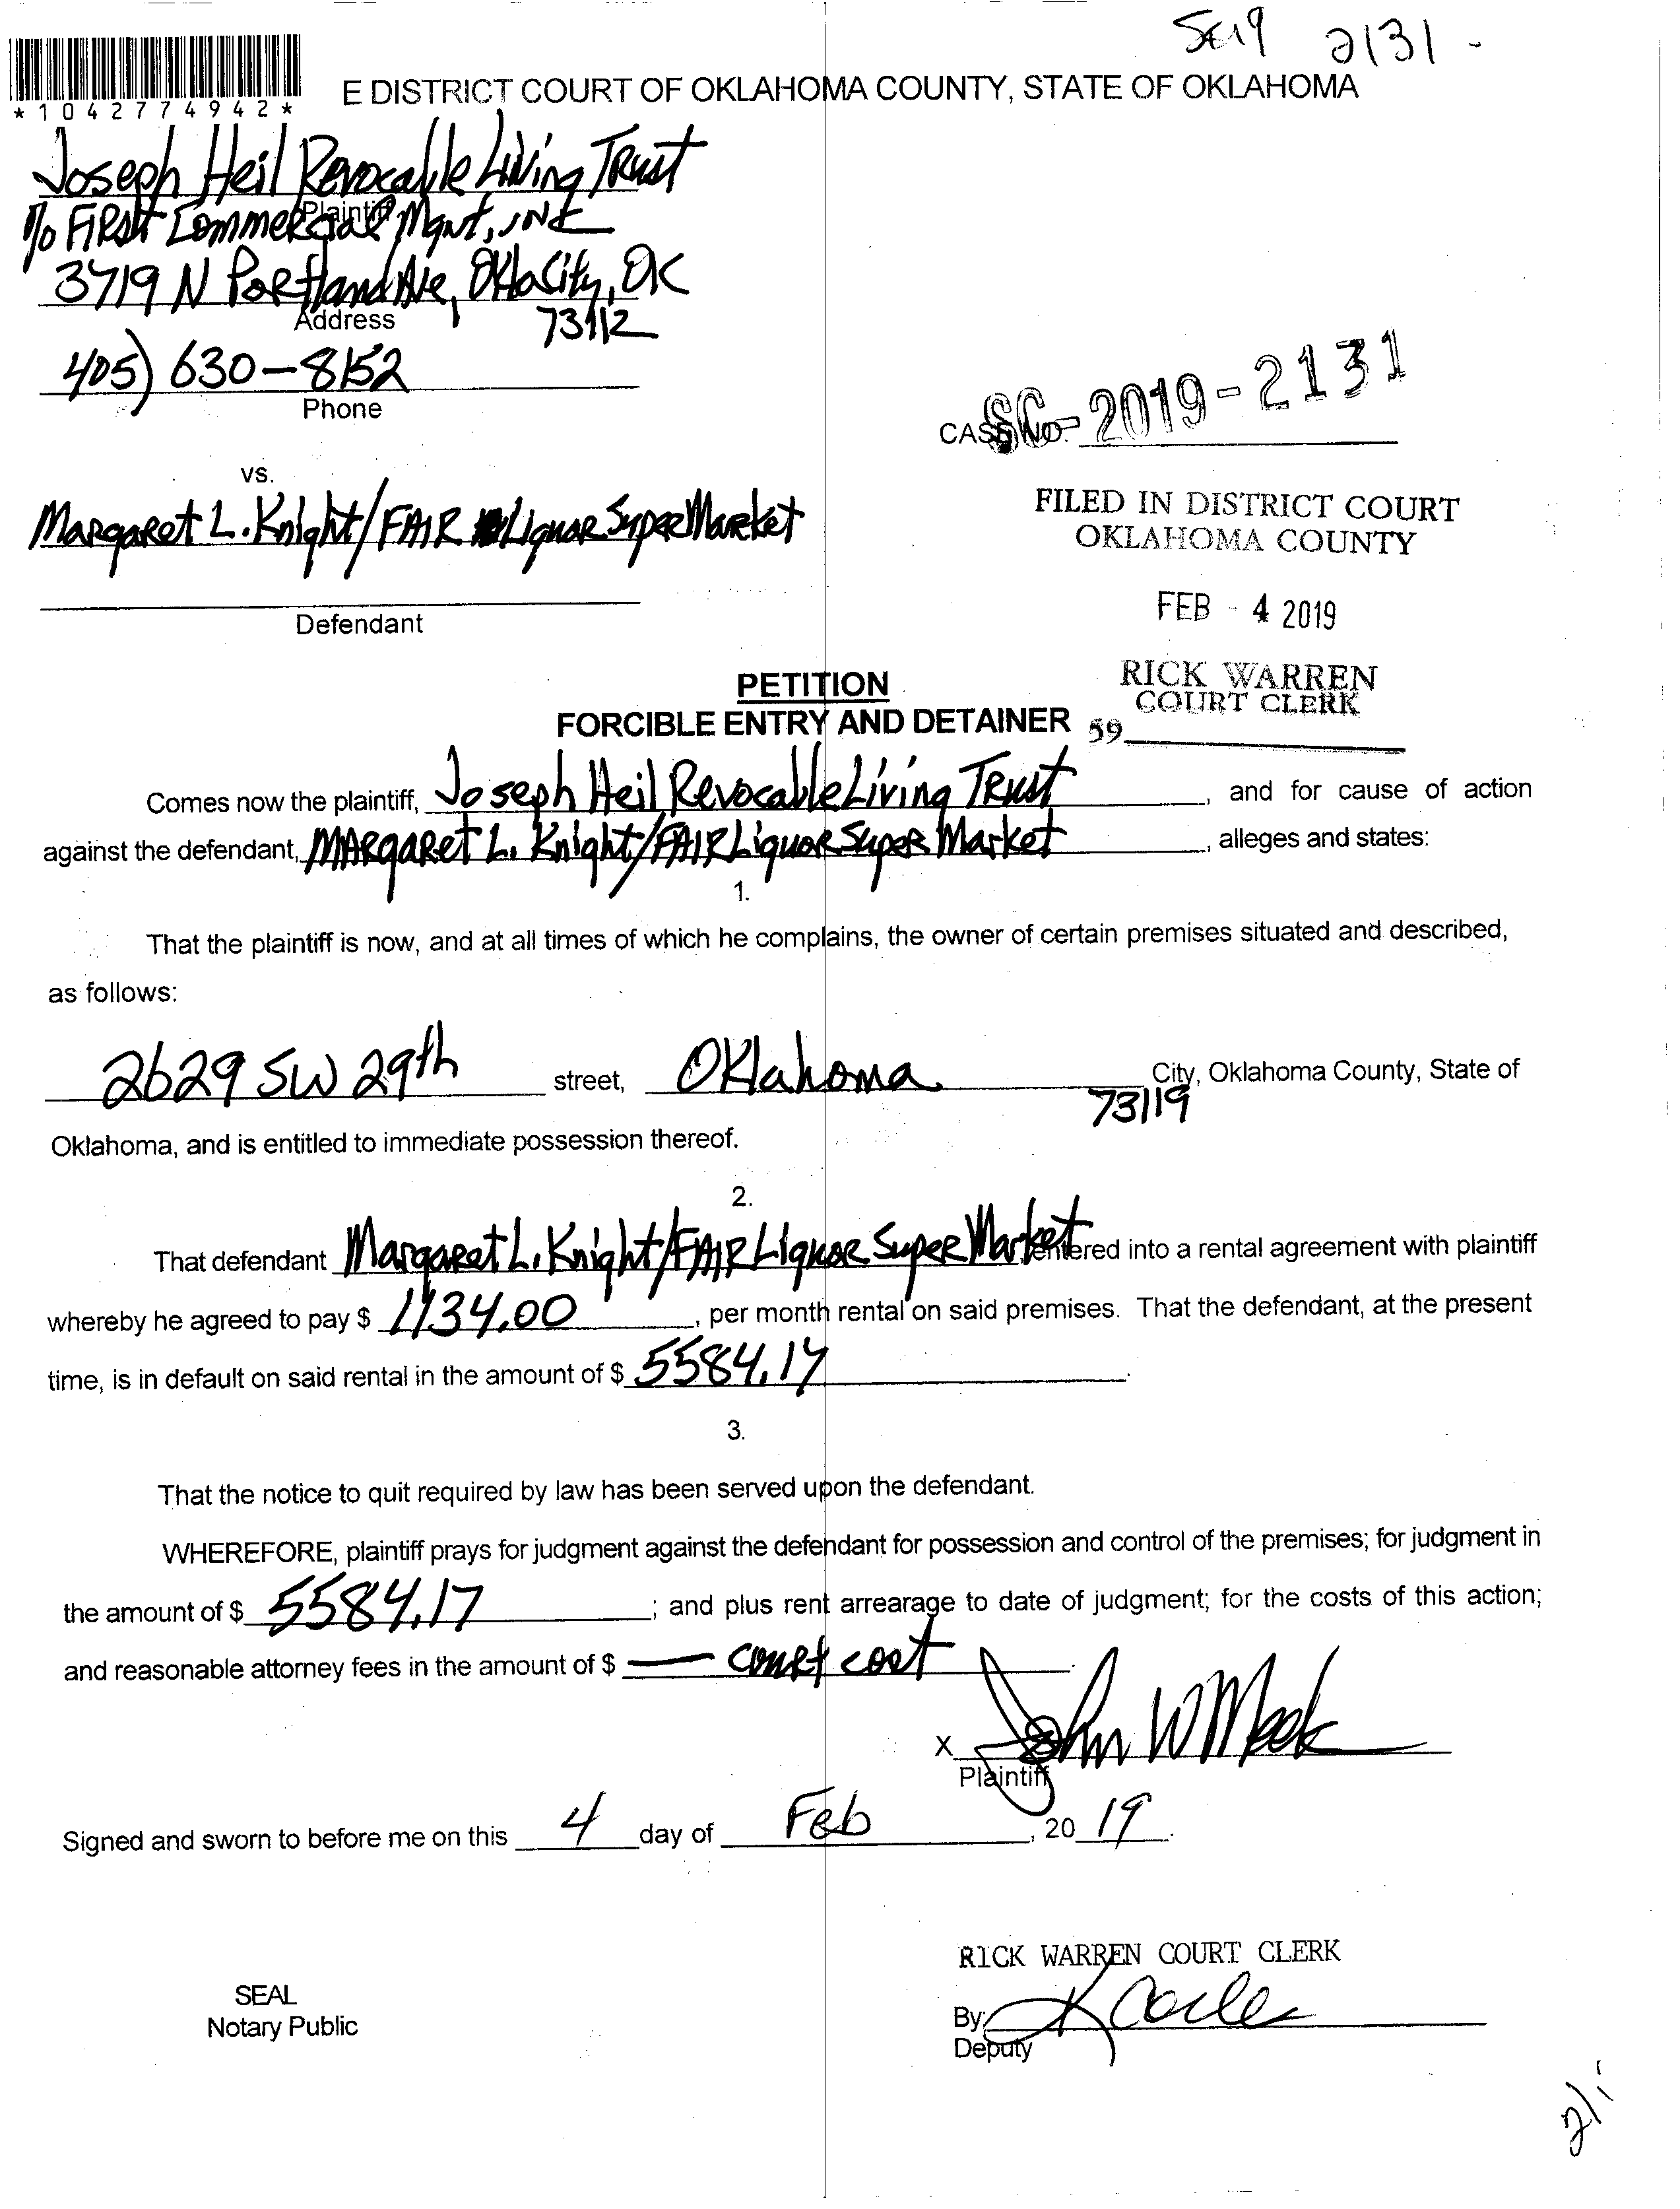 SC19 2131 -
*1042774942*
E DISTRICT COURT OF OKLAHOMA COUNTY, STATE OF OKLAHOMA
Joseph Heil Revocable Living Trust
Plaintiff
c/o First Commercial Mgnt, INC
3719 N Portland Ave, Okla City, OK
Address
73112
405) 630-8152
Phone
CASE NO. SC-2019-2131
vs.
Margaret L. Knight/FAIR Liquor Super Market
Defendant
FILED IN DISTRICT COURT
OKLAHOMA COUNTY
FEB - 4 2019
RICK WARREN
COURT CLERK
59
PETITION
FORCIBLE ENTRY AND DETAINER
Comes now the plaintiff, Joseph Heil Revocable Living Trust, and for cause of action
against the defendant, Margaret L. Knight/FAIR Liquor Super Market, alleges and states:
1.
That the plaintiff is now, and at all times of which he complains, the owner of certain premises situated and described,
as follows:
2629 SW 29th street, Oklahoma City, Oklahoma County, State of
73119
Oklahoma, and is entitled to immediate possession thereof.
2.
That defendant Margaret L. Knight/FAIR Liquor Super Market, entered into a rental agreement with plaintiff
whereby he agreed to pay $ 1134.00, per month rental on said premises. That the defendant, at the present
time, is in default on said rental in the amount of $ 5584.17.
3.
That the notice to quit required by law has been served upon the defendant.
WHEREFORE, plaintiff prays for judgment against the defendant for possession and control of the premises; for judgment in
the amount of $ 5584.17; and plus rent arrearage to date of judgment; for the costs of this action;
and reasonable attorney fees in the amount of $ — court cost.
X John W Meek
Plaintiff
Signed and sworn to before me on this 4 day of Feb, 20 19.
RICK WARREN COURT CLERK
SEAL
Notary Public
By:
Deputy